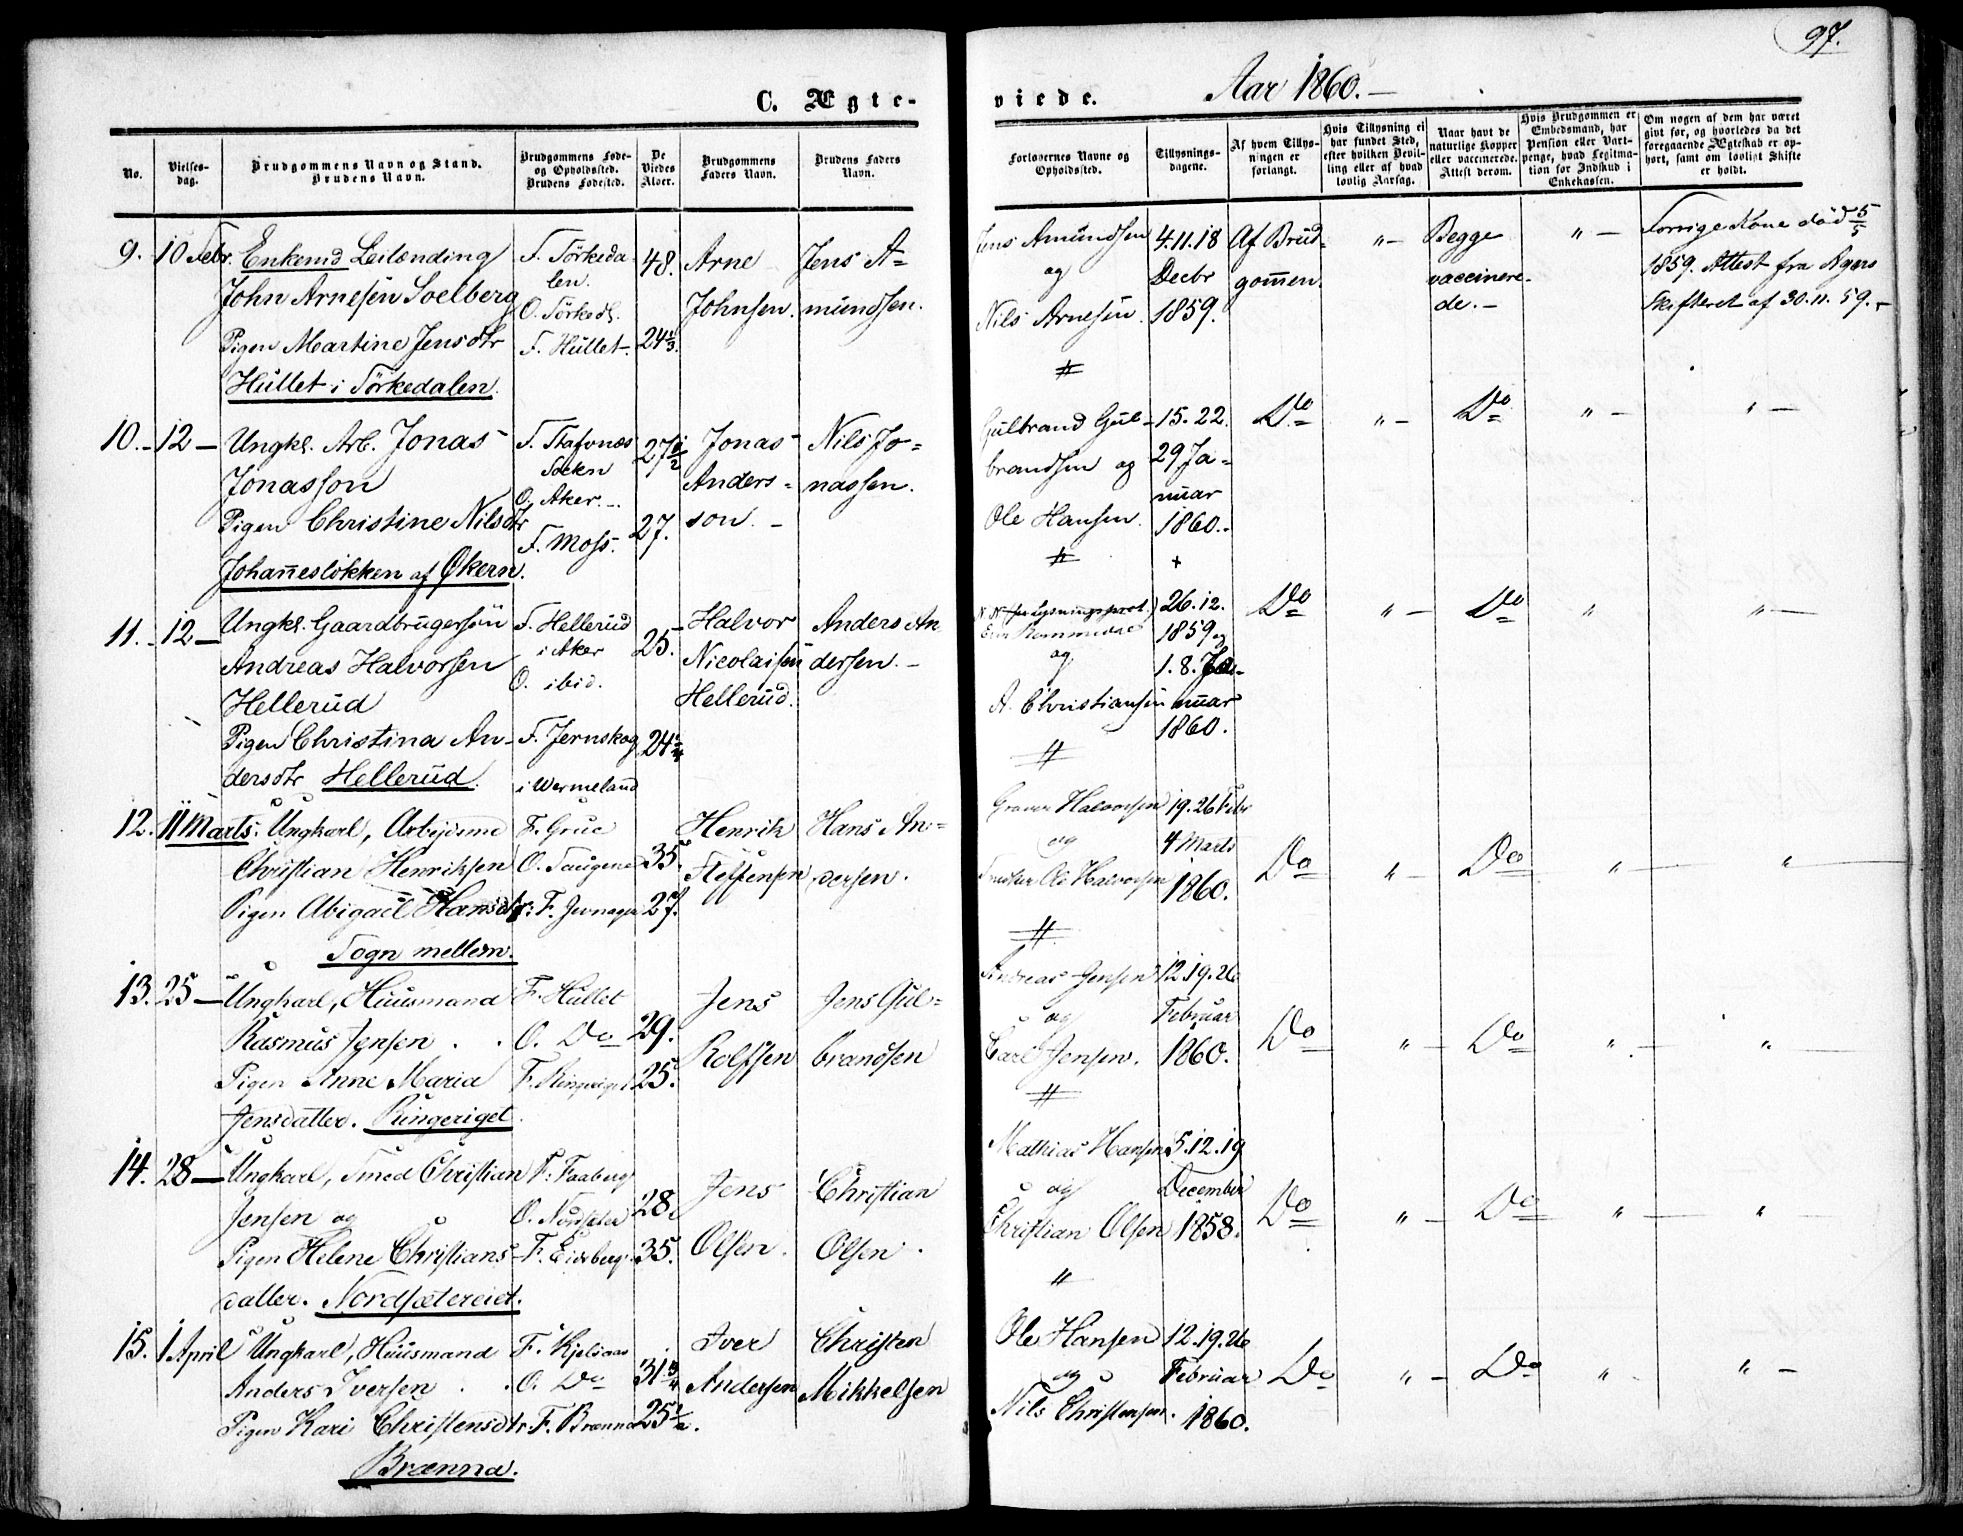 97.
C. Ægteviede. Aar 1860.
No.
Vielsesdag.
Brudgommens Navn og Stand.
Brudens Navn.
Brudgommens Føde- og Opholdssted.
Brudens Fødested.
De Viedes Alder.
Brudgommens Faders Navn.
Brudens Faders Navn.
Forlovernes Navne og Opholdssted.
Tillysningsdagene.
Af hvem Tillysningen er forlangt.
Hvis Tillysning ei har fundet Sted, efter hvilken Bevilling eller af hvad lovlig Aarsag.
Naar havt de naturlige Kopper eller vaccinerede. Attest derom.
Hvis Brudgommen er Embedsmand, har Pension eller Vartpenge, hvad Legitimation for Indskud i Enkekassen.
Om nogen af dem har været givt før, og hvorledes da det foregaaende Ægteskab er ophørt, samt om lovligt Skifte er holdt.
9. 10 Febr. Enkemd Leilending
John Arnesen Soelberg
Pigen Martine Jensdtr
Hullet i Sørkedalen.
F. Sørkedalen.
O. Sørkedl.
F. Hullet.
48.
24 1/3.
Arne
Johnsen.
Jens A=
mundsen.
Jens Amundsen
og
Nils Arnesen.
4. 11. 18
Decbr
1859.
Af Brud-
gommen.
" –
Begge
vaccinere-
de. –
" –
Forrige Kone død 5/5
1859. Attest fra Agers
Skifteret af 30.11.59. –
10. – 12 – Ungkl. Arb. Jonas
Jonasson
Pigen Christine Nilsdtr
Johannesløkken af Økern.
Socken
O. Aker. –
F. Moss.
27 1/2
27.
Jonas
Anders=
son. –
Nils Jo=
nassen.
Gulbrand Gul-
brandsen og
Ole Hansen.
15. 22.
29 Ja-
nuar
1860. –
+
Do
" –
Do
" –
" –
11. – 12 – Ungkl. Gaardbrugersøn
Andreas Halvorsen
Hellerud
Pigen Christina An-
dersdtr Hellerud.
F. Hellerud
i Aker
O. ibid.
F. Jernskog
i Wermeland
25.
24
Halvor
Nicolaisen
Hellerud.
Anders An-
dersen. –
og
A. Christiansen
26. 12.
1859 og
1. 8. Ja-
nuar
1860.
Do
" –
Do
"
" –
12. 11 Marts. Ungkarl, Arbejdsmd
Christian Henriksen
Pigen Abigael Hansdtr.
Sogn mellem.
F. Grue
O. Taugene
F. Jevnager
35.
27.
Henrik
Steffensen
Hans An=
dersen.
Halvorsen
og
Ole Halvorsen
19. 26 Febr
4 Marts
1860.
Do
" –
Do
" –
"
13. 25 – Ungkarl, Huusmand
Rasmus Jensen
Pigen Anne Maria
Jensdatter. Ringeriget.
F. Hullet
O. Do
F. Ringeriget
29.
25.
Jens
Rolfsen
Jens Gul=
brandsen
Andreas Jensen
og
Carl Jensen.
12. 19. 26
Februar
1860.
Do
" –
Do
" –
"
14. 28 – Ungkarl, Smed Christian
Jensen og
Pigen Helene Christians-
datter. Nordsætereiet.
F. Faaberg
O. Nordseter
F. Eidsberg.
28.
35.
Jens
Olsen.
Christian
Olsen.
Mathias Hansen
og
Christian Olsen
5. 12. 19
December
1858.
Do
" –
Do
" –
" –
15. 1 April Ungkarl, Huusmand
Anders Iversen
Pigen Kari Christensdtr.
Brænna.
F. Kjelsaas
O. Do
F. Brænna
31 3/4
25 1/2.
Iver
Andersen
Christen
Mikkelsen
Ole Hansen
og
Nils Christensen.
12. 19. 26
Februar
1860.
Do
" –
Do
"
" –